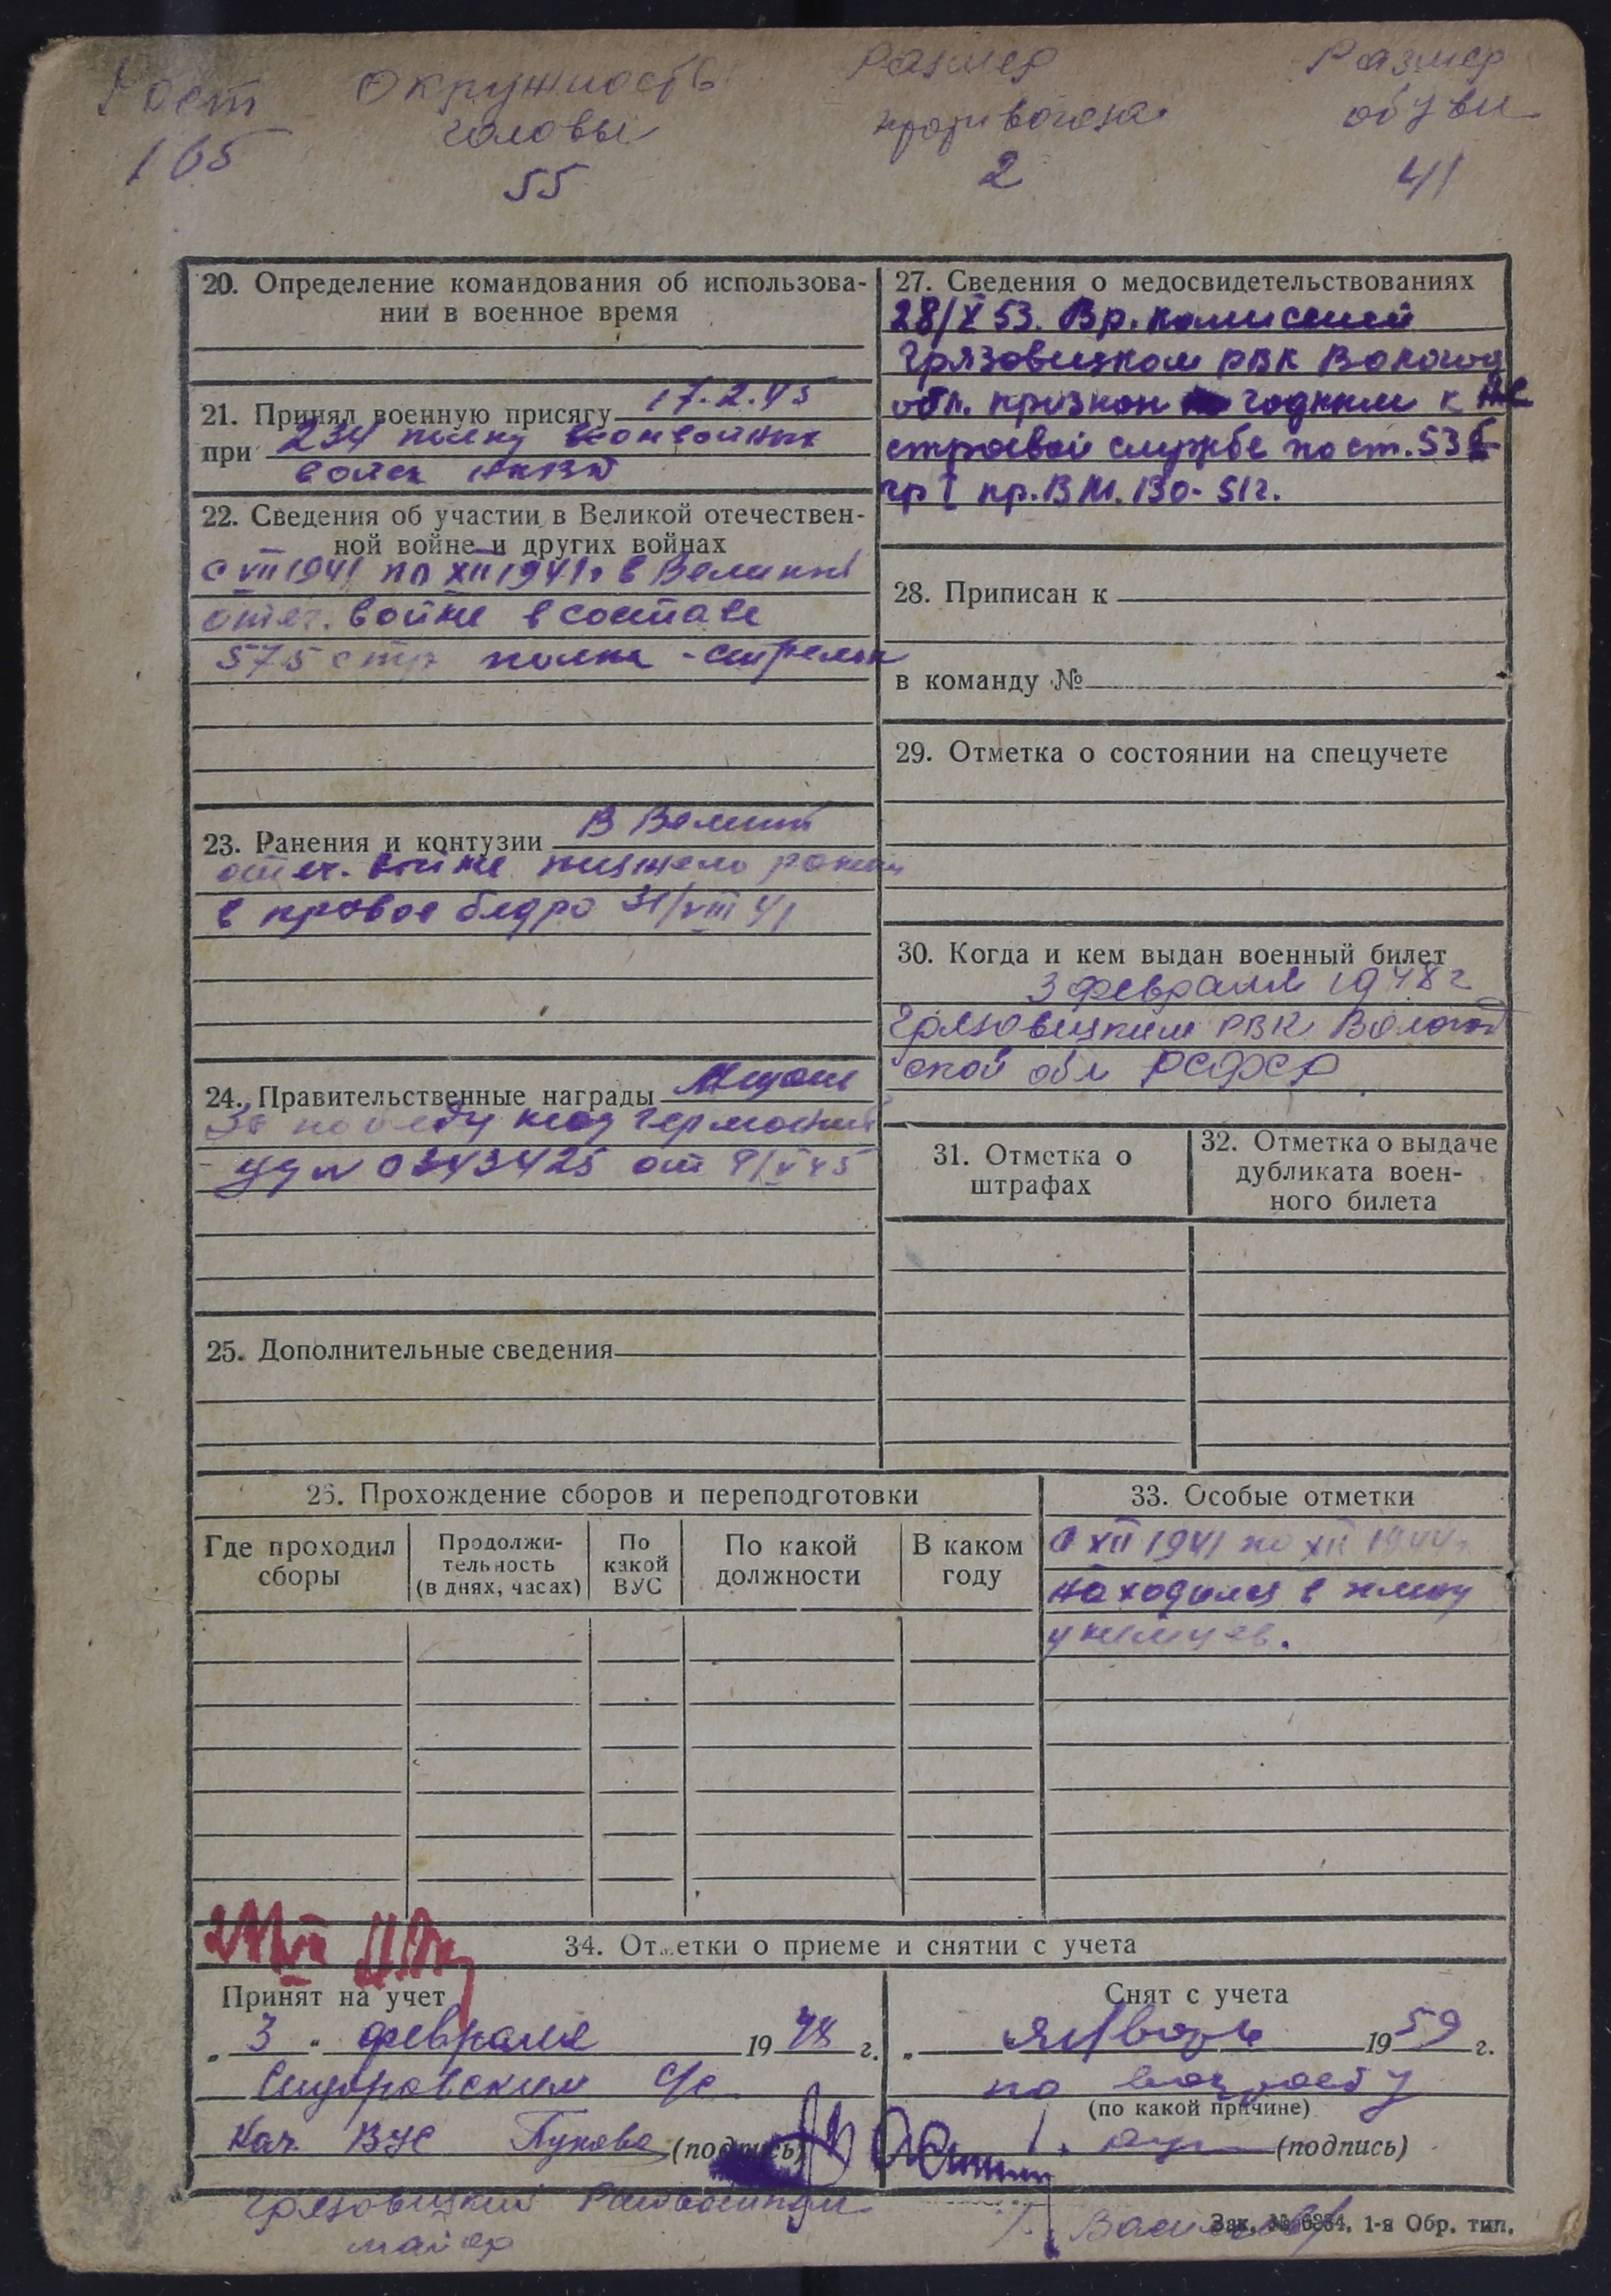 Рост Окружность Размер Размер
головы противогаза обуви
165 55 2 41
20. Определение командования об использова-
нии в военное время
21. Принял военную присягу 17.2.45
при 234 полку конвойных
войск НКВД
22. Сведения об участии в Великой отечествен-
ной войне и других войнах
с VII 1941 по XII 1941г в Великой
отеч. войне в составе
575 стр полка - стрелок
23. Ранения и контузии В Великой
отеч. войне тяжело ранен
в правое бедро 31/VIII 41
24. Правительственные награды Медаль
За победу над Германией
уд № 0343425 от 9/V 45
25. Дополнительные сведения
27. Сведения о медосвидетельствованиях
28/X 53. Вр. комиссией
Грязовецком РВК Вологод
обл. признан годным к не
строевой службе по ст. 53 б
гр I пр. ВМ. 130-51г.
28. Приписан к
в команду №
29. Отметка о состоянии на спецучете
30. Когда и кем выдан военный билет
3 февраля 1948 г
Грязовецким РВК Вологод
ской обл РСФСР
31. Отметка о
штрафах
32. Отметка о выдаче
дубликата воен-
ного билета
26. Прохождение сборов и переподготовки
Где проходил
сборы
Продолжи-
тельность
(в днях, часах)
По
какой
ВУС
По какой
должности
В каком
году
33. Особые отметки
С XII 1941 по XII 1944г
находился в плену
у немцев.
34. Отметки о приеме и снятии с учета
Принят на учет
„ 3 " февраля 1948 г.
Сидоровским С/с
Нач. ВУС (подпись)
Грязовецкий
майор
Снят с учета
„ Январь 1959 г.
по возрасту
(по какой причине)
(подпись)
Зак. № 6384. 1-я Обр. тип.